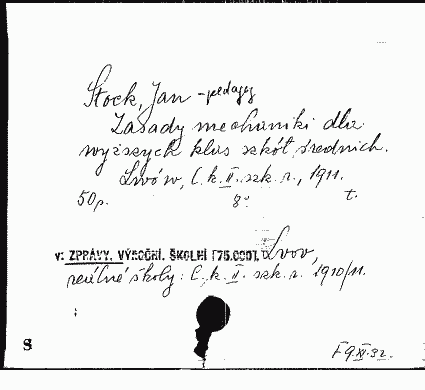 Stock, Jan - pedagog
Zasady mechaniki dla
wyższych klas szkół średnich.
Lwów, C. k. II. szk. r., 1911.
50 p. 8° t.
v: ZPRÁVY. VÝROČNÍ. ŠKOLNÍ [75.000]. Lvov,
reálné školy: C. k. II. szk. r. 1910/11.
S
F9.XI.32.